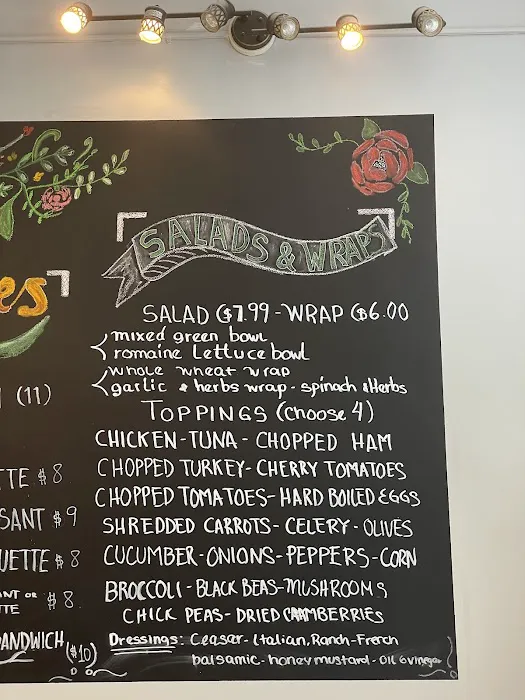 SALADS & WRAPS
SALAD $7.99 - WRAP $6.00
mixed green bowl
romaine Lettuce bowl
whole wheat wrap
garlic & herbs wrap - spinach & Herbs
TOPPINGS (choose 4)
CHICKEN - TUNA - CHOPPED HAM
CHOPPED TURKEY - CHERRY TOMATOES
CHOPPED TOMATOES - HARD BOILED EGGS
SHREDDED CARROTS - CELERY - OLIVES
CUCUMBER - ONIONS - PEPPERS - CORN
BROCCOLI - BLACK BEAS - MUSHROOMS
CHICK PEAS - DRIED CRAMBERRIES
Dressings: Ceasar - Italian, Ranch - French
balsamic - honey mustard - OIL & vinegar
es
(11)
TTE $8
SANT $9
UETTE $8
ANT OR
TTE $8
ANDWICH
($10)